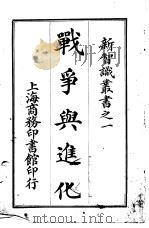 新智識叢書之一
戰爭與進化
上海商務印書館印行